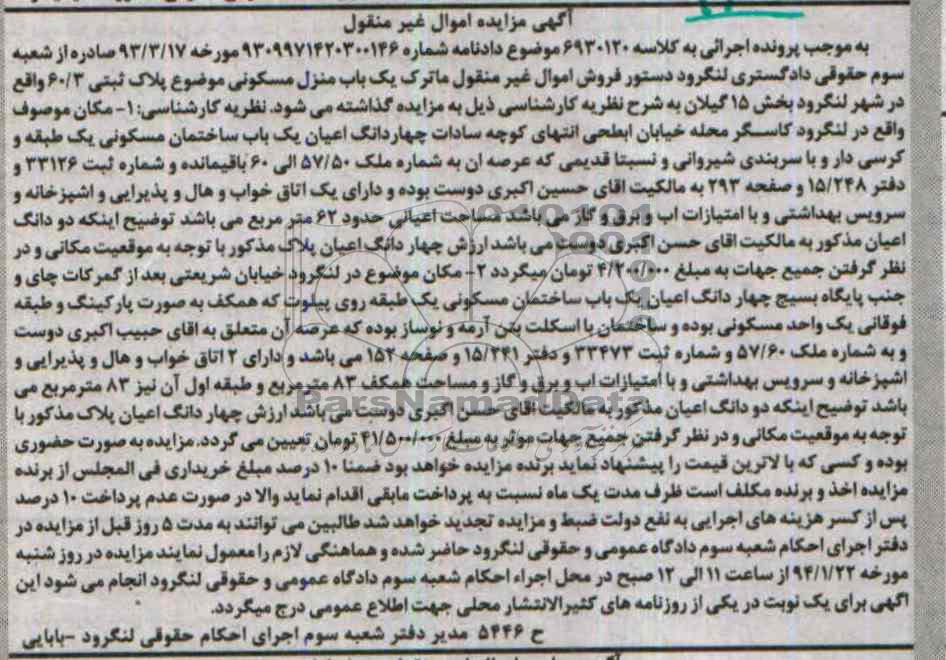 آگهی مزایده اموال غیر منقول
به موجب پرونده اجرائی به کلاسه ۶۹۳۰۱۲۰ موضوع دادنامه شماره ۹۳۰۹۹۷۱۴۲۰۳۰۰۱۴۶ مورخه ۹۳/۳/۱۷ صادره از شعبه
سوم حقوقی دادگستری لنگرود دستور فروش اموال غیر منقول ماترک یک باب منزل مسکونی موضوع پلاک ثبتی ۶۰/۳ واقع
در شهر لنگرود بخش ۱۵ گیلان به شرح نظریه کارشناسی ذیل به مزایده گذاشته می شود. نظریه کارشناسی: ۱- مکان موصوف
واقع در لنگرود کاسگر محله خیابان ابطحی انتهای کوچه سادات چهاردانگ اعیان یک باب ساختمان مسکونی یک طبقه و
کرسی دار و با سربندی شیروانی و نسبتا قدیمی که عرصه ان به شماره ملک ۵۷/۵۰ الی ۶۰ باقیمانده و شماره ثبت ۳۳۱۲۶ و
دفتر ۱۵/۲۴۸ و صفحه ۲۹۳ به مالکیت اقای حسین اکبری دوست بوده و دارای یک اتاق خواب و هال و پذیرایی و اشپزخانه و
سرویس بهداشتی و با امتیازات اب و برق و گاز می باشد مساحت اعیانی حدود ۶۲ متر مربع می باشد توضیح اینکه دو دانگ
اعیان مذکور به مالکیت اقای حسن اکبری دوست می باشد ارزش چهار دانگ اعیان پلاک مذکور با توجه به موقعیت مکانی و در
نظر گرفتن جمیع جهات به مبلغ ۴/۲۰۰/۰۰۰ تومان میگردد ۲- مکان موضوع در لنگرود خیابان شریعتی بعد از گمرکات چای و
جنب پایگاه بسیج چهار دانگ اعیان یک باب ساختمان مسکونی یک طبقه روی پیلوت که همکف به صورت پارکینگ و طبقه
فوقانی یک واحد مسکونی بوده و ساختمان با اسکلت بتن آرمه و نوساز بوده که عرصه آن متعلق به اقای حبیب اکبری دوست
و به شماره ملک ۵۷/۶۰ و شماره ثبت ۳۳۴۷۳ و دفتر ۱۵/۲۴۱ و صفحه ۱۵۲ می باشد و دارای ۲ اتاق خواب و هال و پذیرایی و
اشپزخانه و سرویس بهداشتی و با امتیازات اب و برق و گاز و مساحت همکف ۸۳ مترمربع و طبقه اول آن نیز ۸۳ مترمربع می
باشد توضیح اینکه دو دانگ اعیان مذکور به مالکیت اقای حسن اکبری دوست می باشد ارزش چهار دانگ اعیان پلاک مذکور با
توجه به موقعیت مکانی و در نظر گرفتن جمیع جهات موثر به مبلغ ۴۱/۵۰۰/۰۰۰ تومان تعیین می گردد. مزایده به صورت حضوری
بوده و کسی که با لاترین قیمت را پیشنهاد نماید برنده مزایده خواهد بود ضمنا ۱۰ درصد مبلغ خریداری فی المجلس از برنده
مزایده اخذ و برنده مکلف است ظرف مدت یک ماه نسبت به پرداخت مابقی اقدام نماید والا در صورت عدم پرداخت ۱۰ درصد
پس از کسر هزینه های اجرایی به نفع دولت ضبط و مزایده تجدید خواهد شد طالبین می توانند به مدت ۵ روز قبل از مزایده در
دفتر اجرای احکام شعبه سوم دادگاه عمومی و حقوقی لنگرود حاضر شده و هماهنگی لازم را معمول نمایند مزایده در روز شنبه
مورخه ۹۴/۱/۲۲ از ساعت ۱۱ الی ۱۲ صبح در محل اجراء احکام شعبه سوم دادگاه عمومی و حقوقی لنگرود انجام می شود این
اگهی برای یک نوبت در یکی از روزنامه های کثیرالانتشار محلی جهت اطلاع عمومی درج میگردد.
ح ۵۴۴۶ مدیر دفتر شعبه سوم اجرای احکام حقوقی لنگرود -بابایی
ParsNamadData